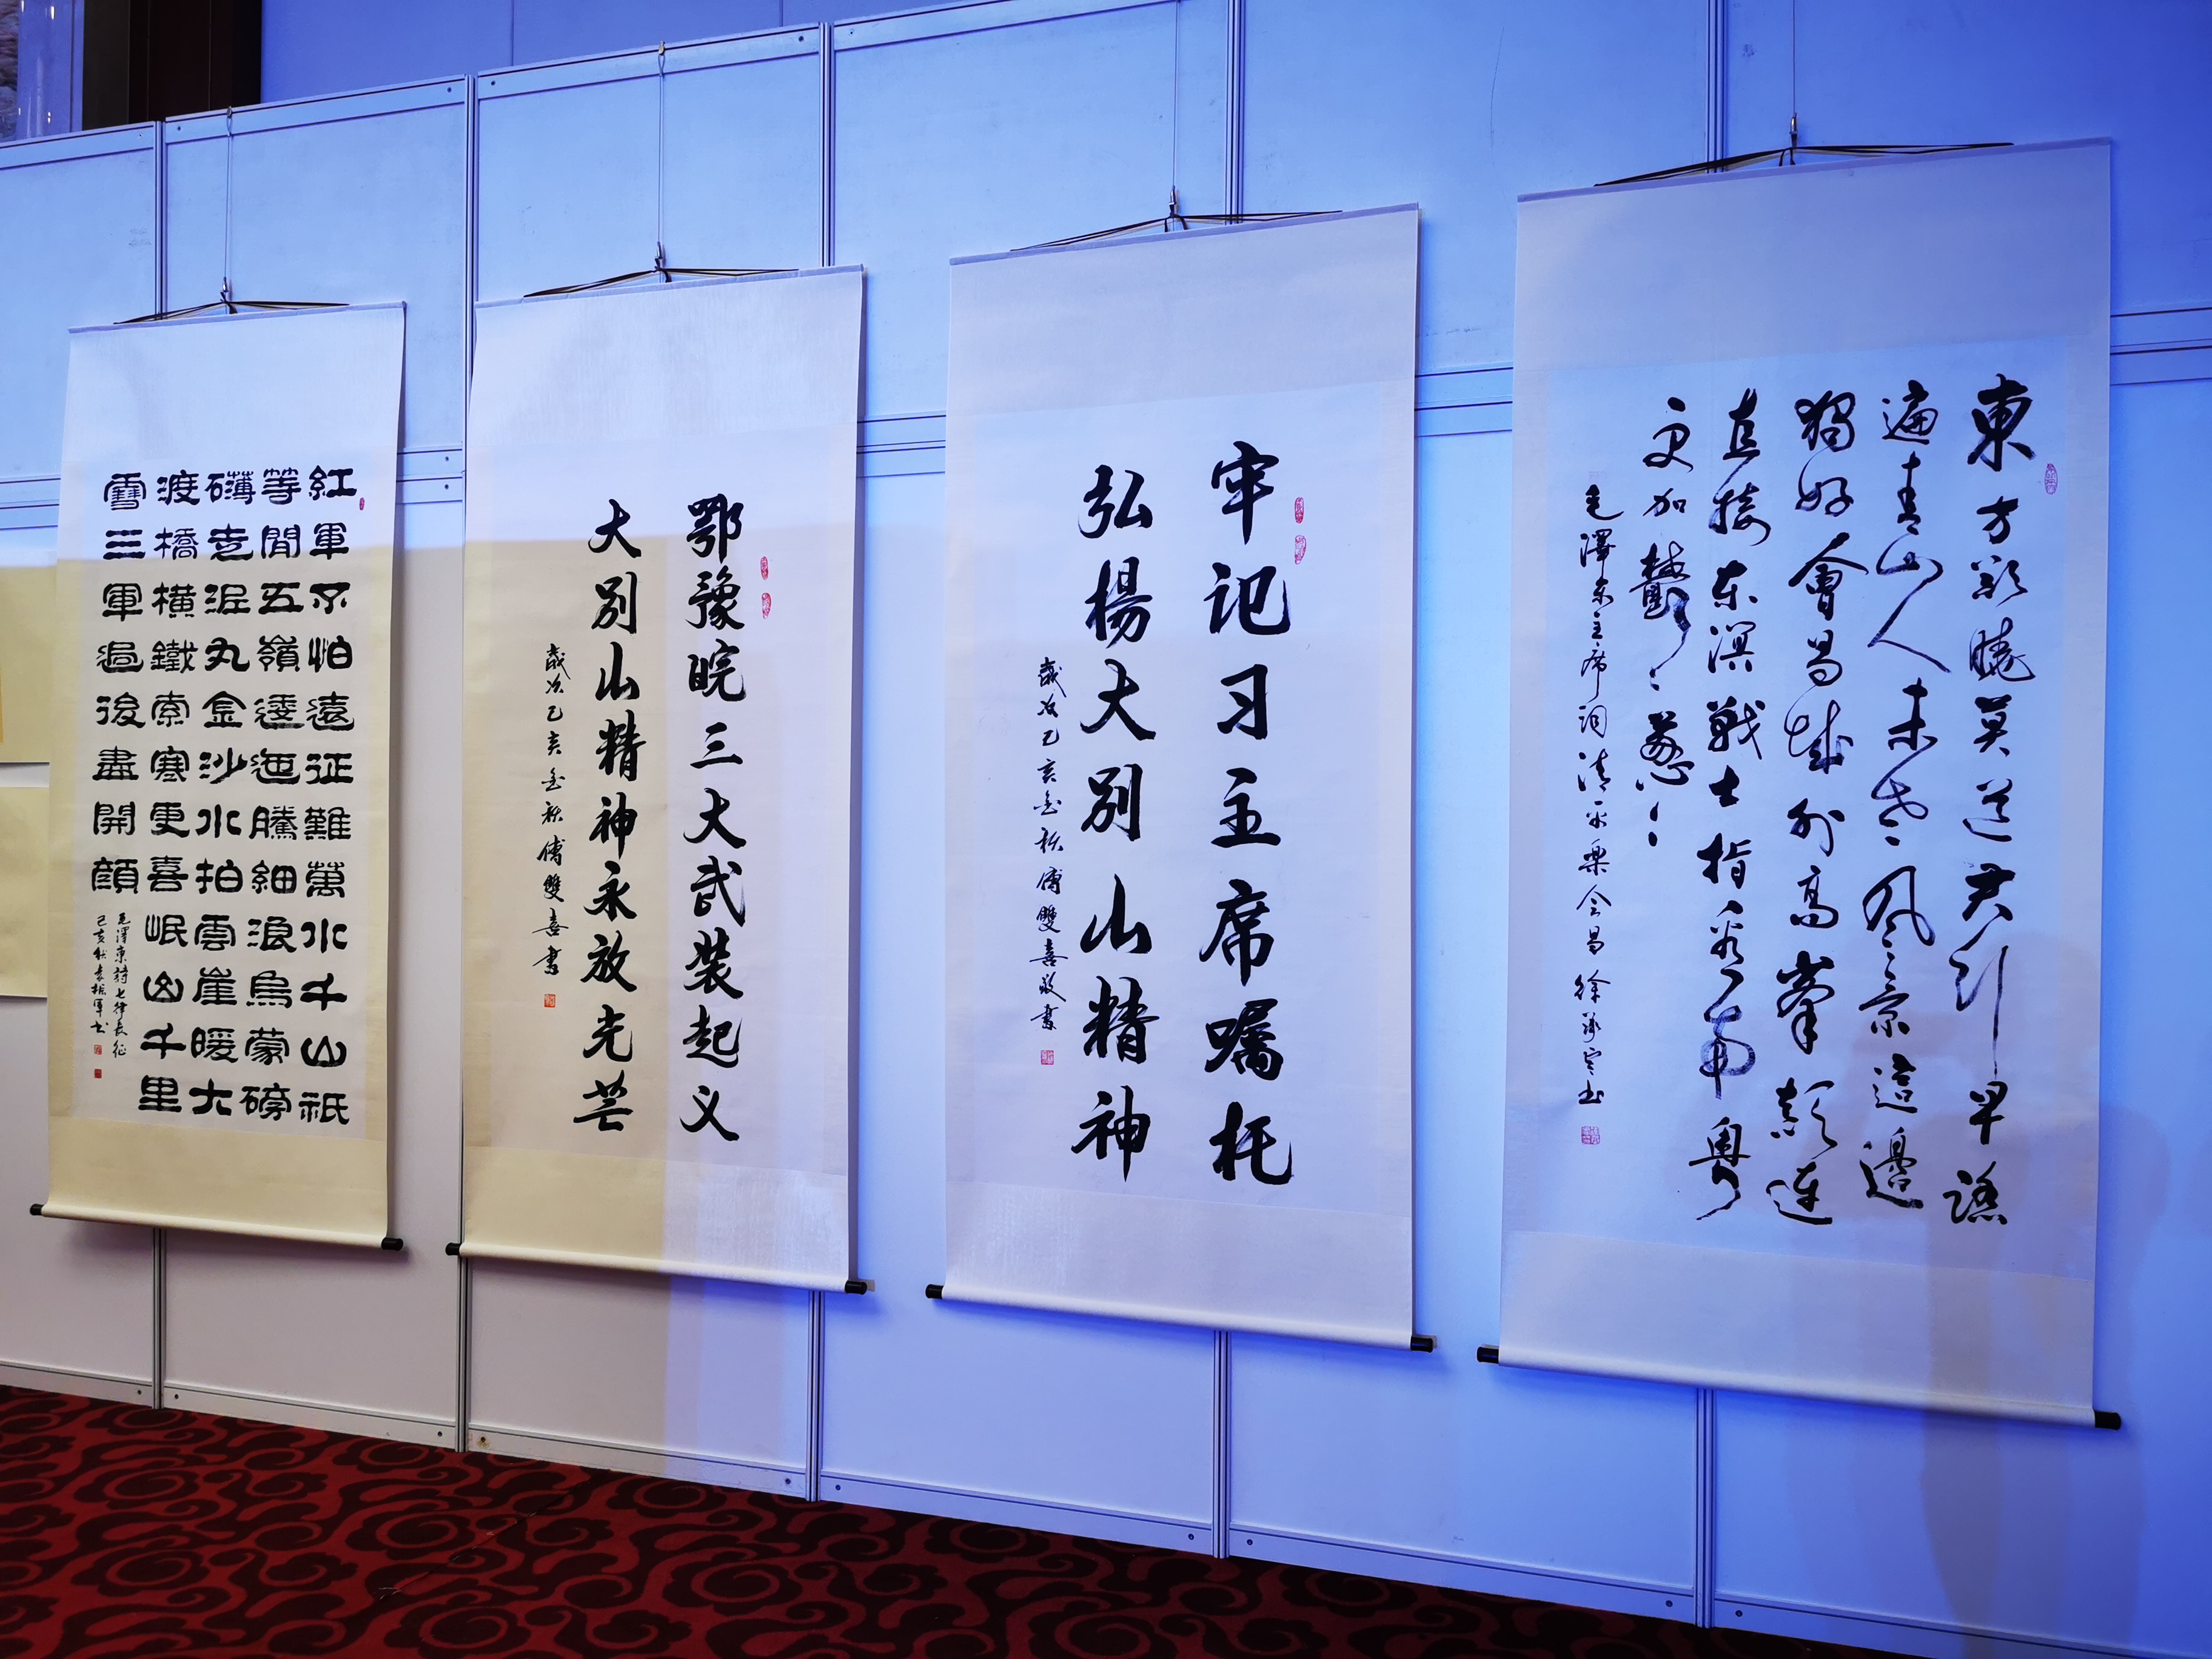 東方欲曉莫道君行早踏
遍青山人未老風景這邊
獨好會昌城外高峯顛连
直接东溟戰士指看南粤
更加鬱〻葱〻
毛澤东主席词清平樂会昌徐书
牢记习主席嘱托
弘楊大别山精神
歲次己亥金秋傅雙喜敬書
鄂豫皖三大武装起义
大别山精神永放光芒
歲次己亥金秋傅雙喜書
紅軍不怕遠征難萬水千山祇
等閒五嶺逶迤騰細浪烏蒙磅
礴走泥丸金沙水拍雲崖暖大
渡橋橫鐵索寒更喜岷山千里
雪三軍過後盡開顔
毛澤東詩七律長征
己亥秋袁振軍书